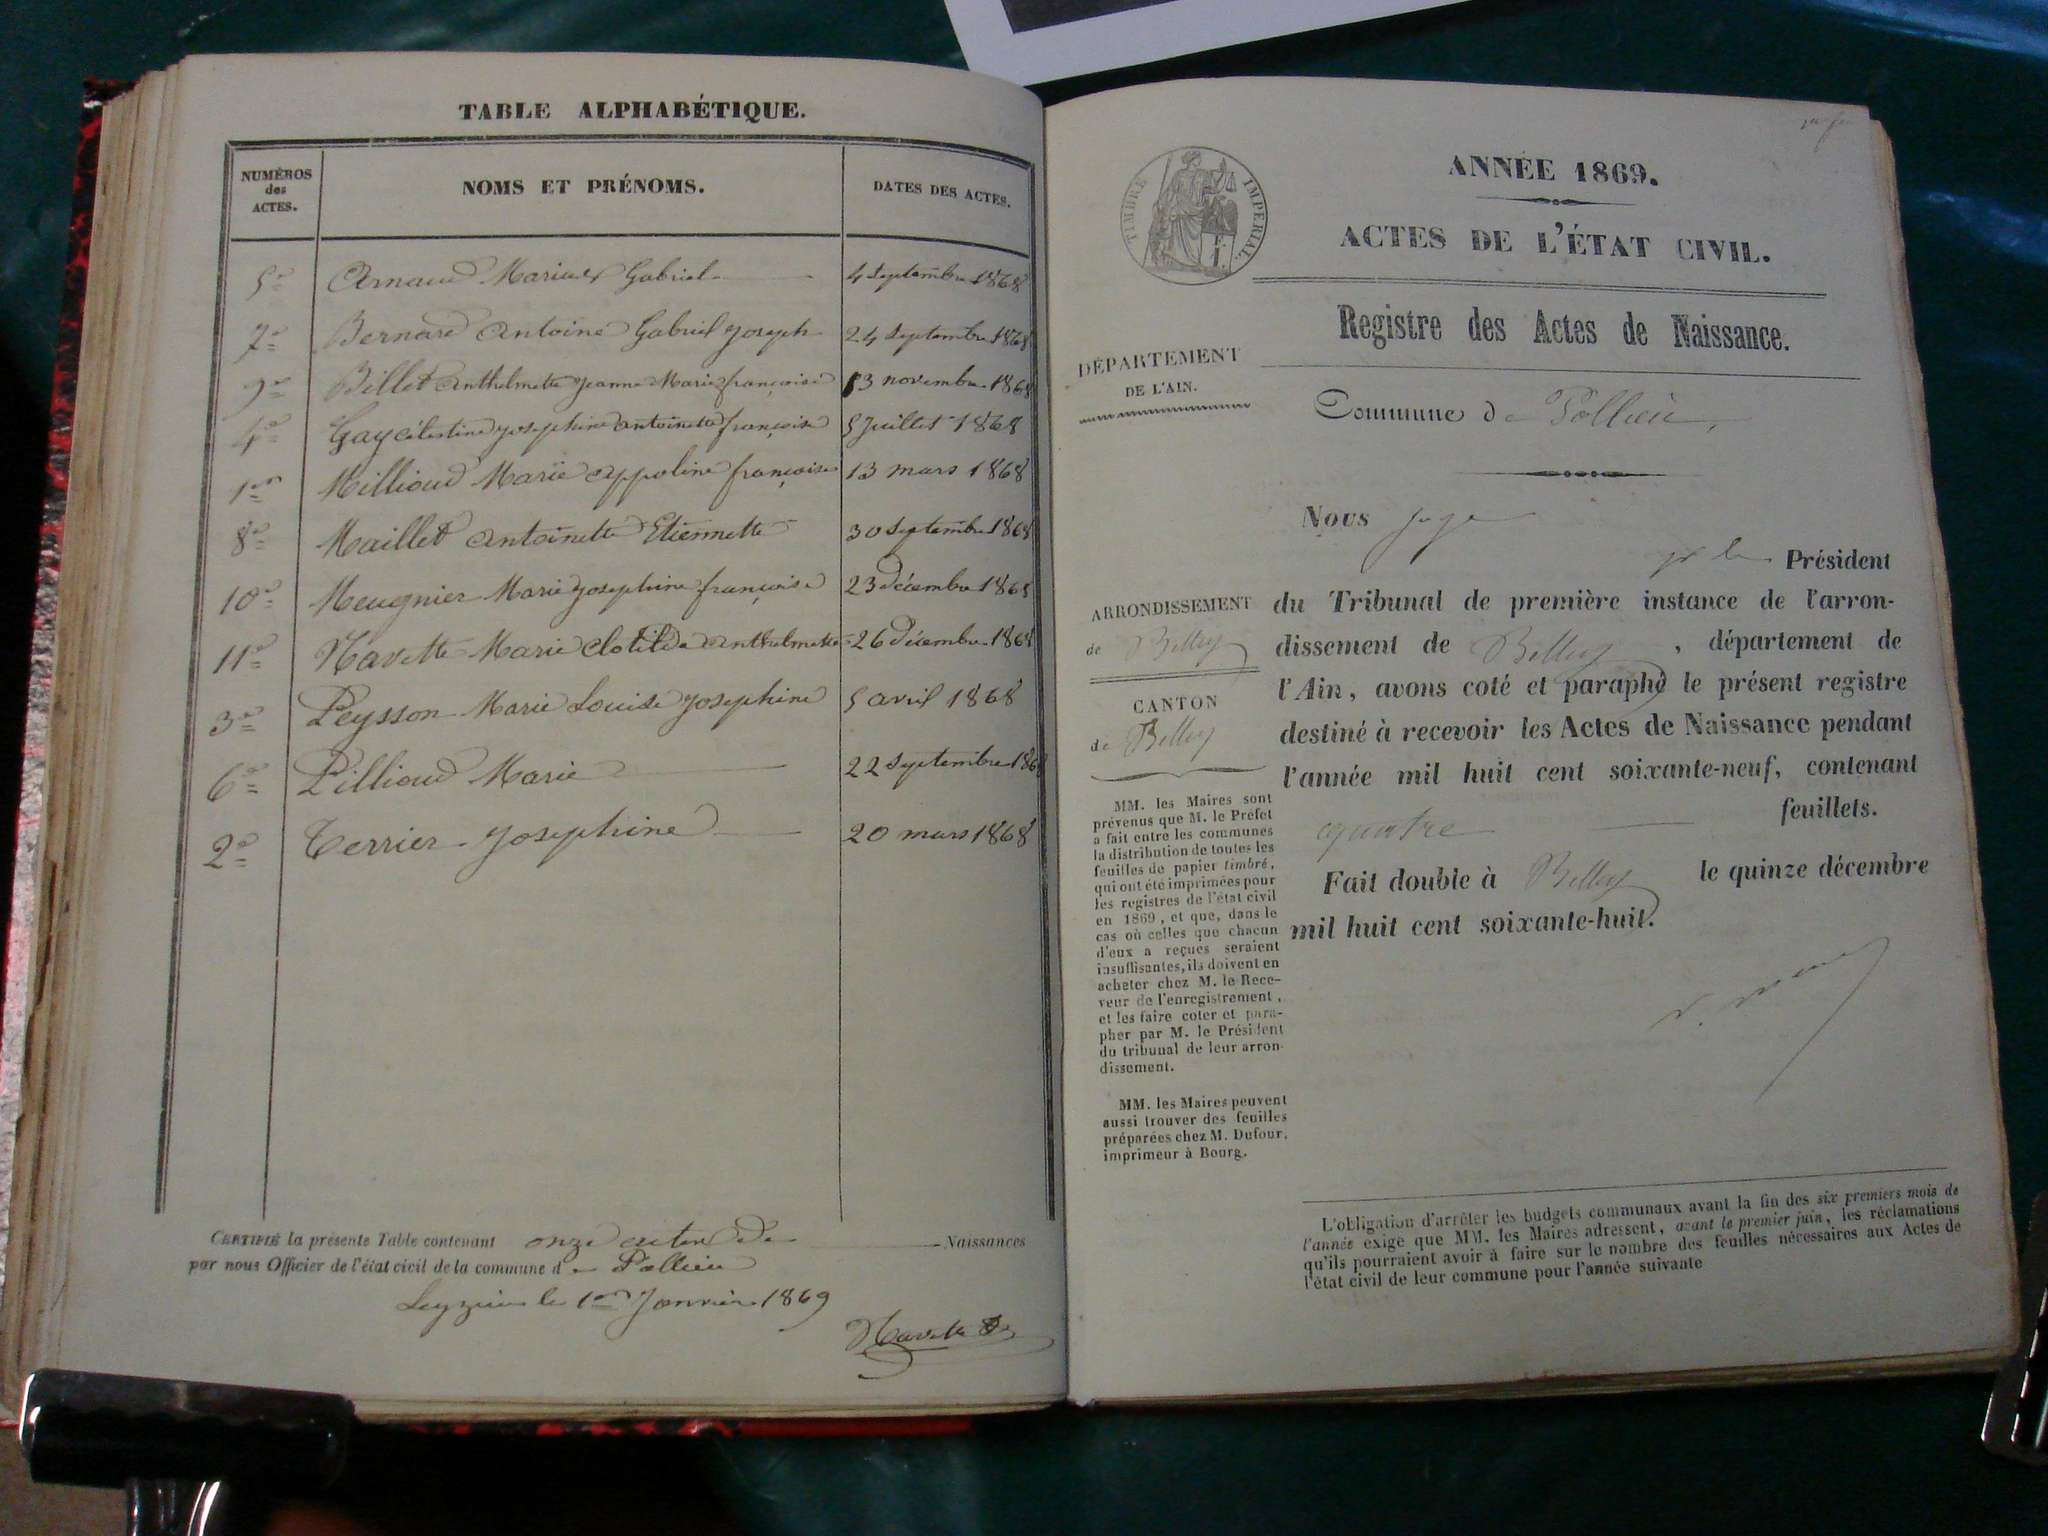 TABLE ALPHABÉTIQUE.
NUMÉROS des ACTES. NOMS ET PRÉNOMS. DATES DES ACTES.
5e Arnaud Marius Gabriel 4 septembre 1868
7e Bernard Antoine Gabriel Joseph 24 septembre 1868
9e Billet Anthelmette Jeanne Marie françoise 13 novembre 1868
4e Gay Célestine Josephine antoinette françoise 5 Juillet 1868
1er Millioud Marie Appoline françoise 13 mars 1868
8e Maillet Antoinette Etiennette 30 septembre 1868
10e Meugnier Marie Josephine françoise 23 décembre 1868
11e Navette Marie Clotilde anthelmette 26 décembre 1868
3e Peysson Marie Louise Josephine 5 avril 1868
6e Pillioud Marie 22 septembre 1868
2e Terrier Josephine 20 mars 1868
CERTIFIÉ la présente Table contenant onze actes de Naissances
par nous Officier de l'état civil de la commune de Pollieu
le 1er Janvier 1869
Navette
TIMBRE IMPERIAL.
ANNÉE 1869.
ACTES DE L'ÉTAT CIVIL.
Registre des Actes de Naissance.
DÉPARTEMENT
DE L'AIN.
Commune de Pollieu,
Nous juge
Président
ARRONDISSEMENT
de Belley
CANTON
de Belley
du Tribunal de première instance de l'arron-
dissement de Belley, département de
l'Ain, avons coté et paraphé le présent registre
destiné à recevoir les Actes de Naissance pendant
l'année mil huit cent soixante-neuf, contenant
quatre feuillets.
Fait double à Belley le quinze décembre
mil huit cent soixante-huit.
MM. les Maires sont
prévenus que M. le Préfet
a fait entre les communes
la distribution de toutes les
feuilles de papier timbré,
qui ont été imprimées pour
les registres de l'état civil
en 1869, et que, dans le
cas où celles que chacun
d'eux a reçues seraient
insuffisantes, ils doivent en
acheter chez M. le Rece-
veur de l'enregistrement,
et les faire coter et para-
pher par M. le Président
du tribunal de leur arron-
dissement.
MM. les Maires peuvent
aussi trouver des feuilles
préparées chez M. Dufour,
imprimeur à Bourg.
L'obligation d'arrêter les budgets communaux avant la fin des six premiers mois de
l'année exige que MM. les Maires adressent, avant le premier juin, les réclamations
qu'ils pourraient avoir à faire sur le nombre des feuilles nécessaires aux Actes de
l'état civil de leur commune pour l'année suivante